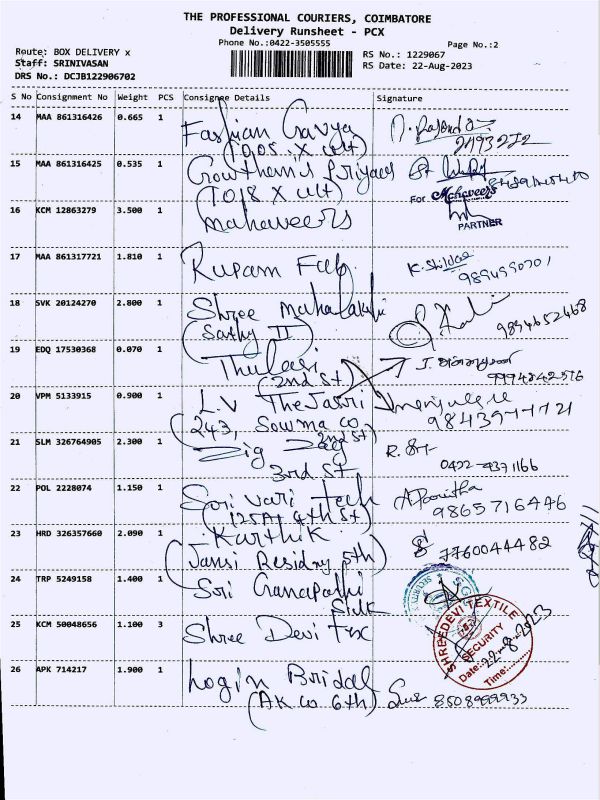 THE PROFESSIONAL COURIERS, COIMBATORE
Delivery Runsheet - PCX
Phone No.:0422-3505555
Page No.:2
Route: BOX DELIVERY x
Staff: SRINIVASAN
DRS No.: DCJB122906702
RS No.: 1229067
RS Date: 22-Aug-2023
S No Consignment No Weight PCS Consignee Details Signature
14 MAA 861316426 0.665 1
15 MAA 861316425 0.535 1
For Mahaveers
16 KCM 12863279 3.500 1 Mahaveers
PARTNER
17 MAA 861317721 1.810 1 Rupam Fab
9894990701
18 SVK 20124270 2.800 1 Shree Mahalakshmi
(Sathy II)
9894652468
19 EDQ 17530368 0.070 1 Thulasi
(2nd St)
9994242576
20 VPM 5133915 0.900 1 L.V
(243, Sowma Co
2nd St)
21 SLM 326764905 2.300 1 Zig Zag
3rd St
0422-4371166
22 POL 2228074 1.150 1 Sri Vari Tech
(125A, 4th St)
9865716446
23 HRD 326357660 2.090 1 Karthik
(Jansi Residency 5th)
7760044482
24 TRP 5249158 1.400 1 Sri Ganapathi
Silk
25 KCM 50048656 1.100 3 Shree Devi Tex
SHREEDEVI TEXTILE
SECURITY
Date: 22-8-2023
Time:
26 APK 714217 1.900 1 Login Bridal
(AK Co 6th)
8508999933